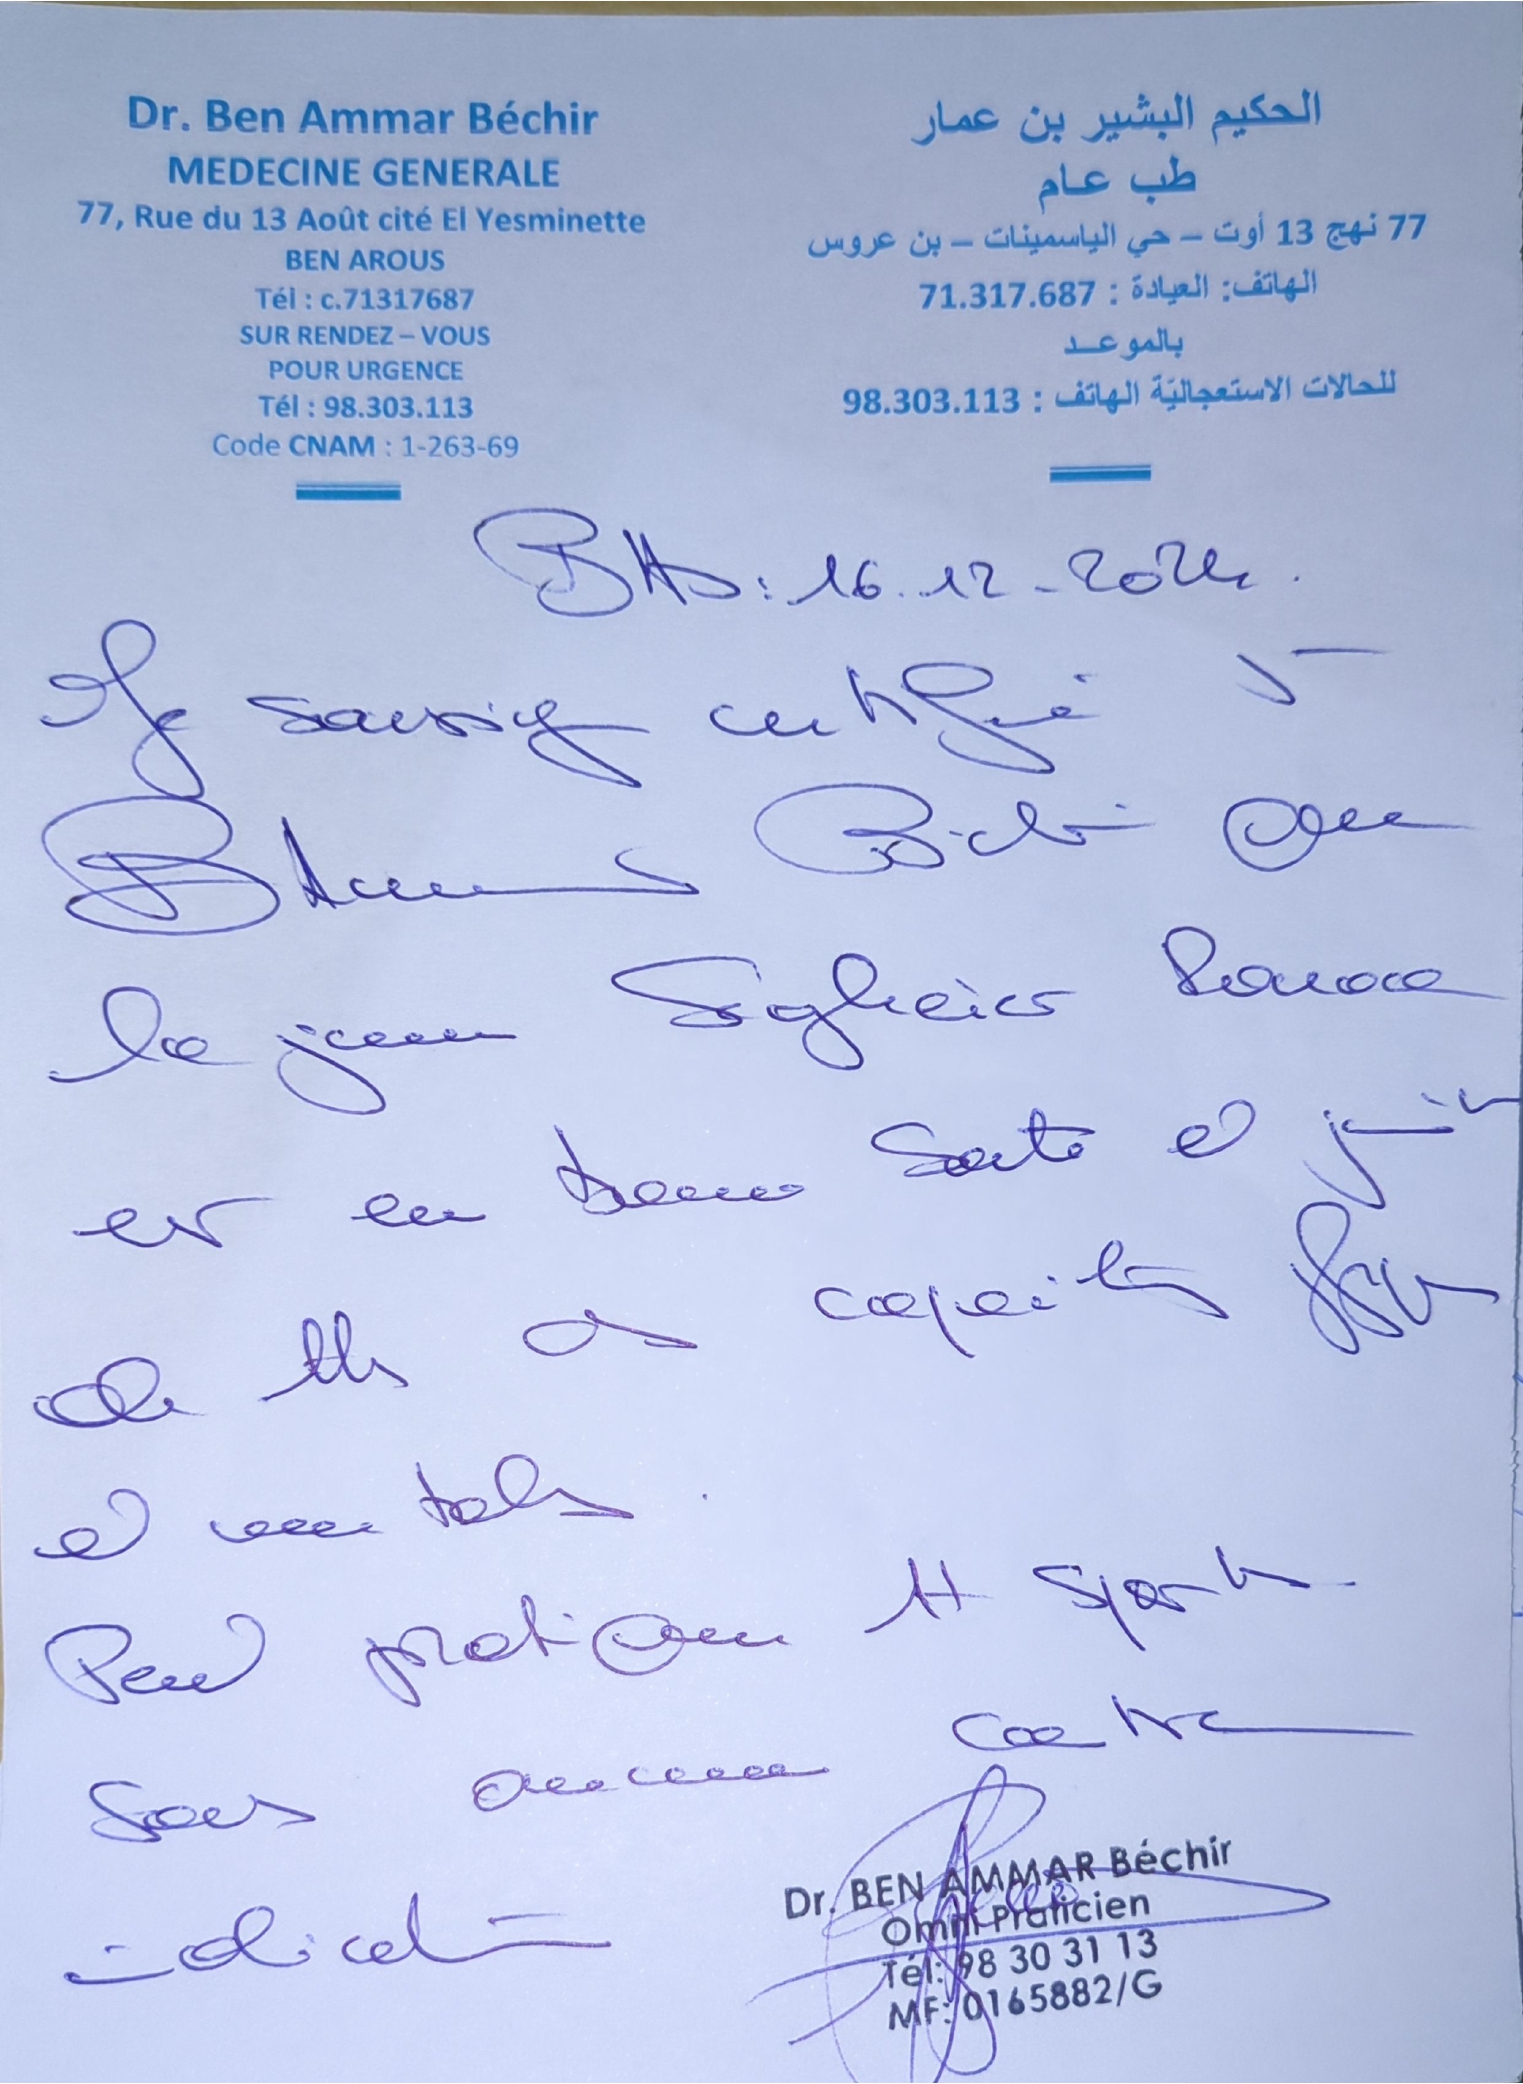 Dr. Ben Ammar Béchir
MEDECINE GENERALE
77, Rue du 13 Août cité El Yesminette
BEN AROUS
Tél : c.71317687
SUR RENDEZ – VOUS
POUR URGENCE
Tél : 98.303.113
Code CNAM : 1-263-69
الحكيم البشير بن عمار
طب عام
77 نهج 13 أوت – حي الياسمينات – بن عروس
الهاتف: العيادة : 71.317.687
بالموعد
للحالات الاستعجاليّة الهاتف : 98.303.113
16.12-2024.
Je soussigné certifié
Béchir que
la jeune
est en bonne santé et jouit
de tts ses capacités physiques
et mentales.
Peut pratiquer tt sports
sans aucune contre
indication
Dr. BEN AMMAR Béchir
Omni Praticien
Tél: 98 30 31 13
MF: 0165882/G